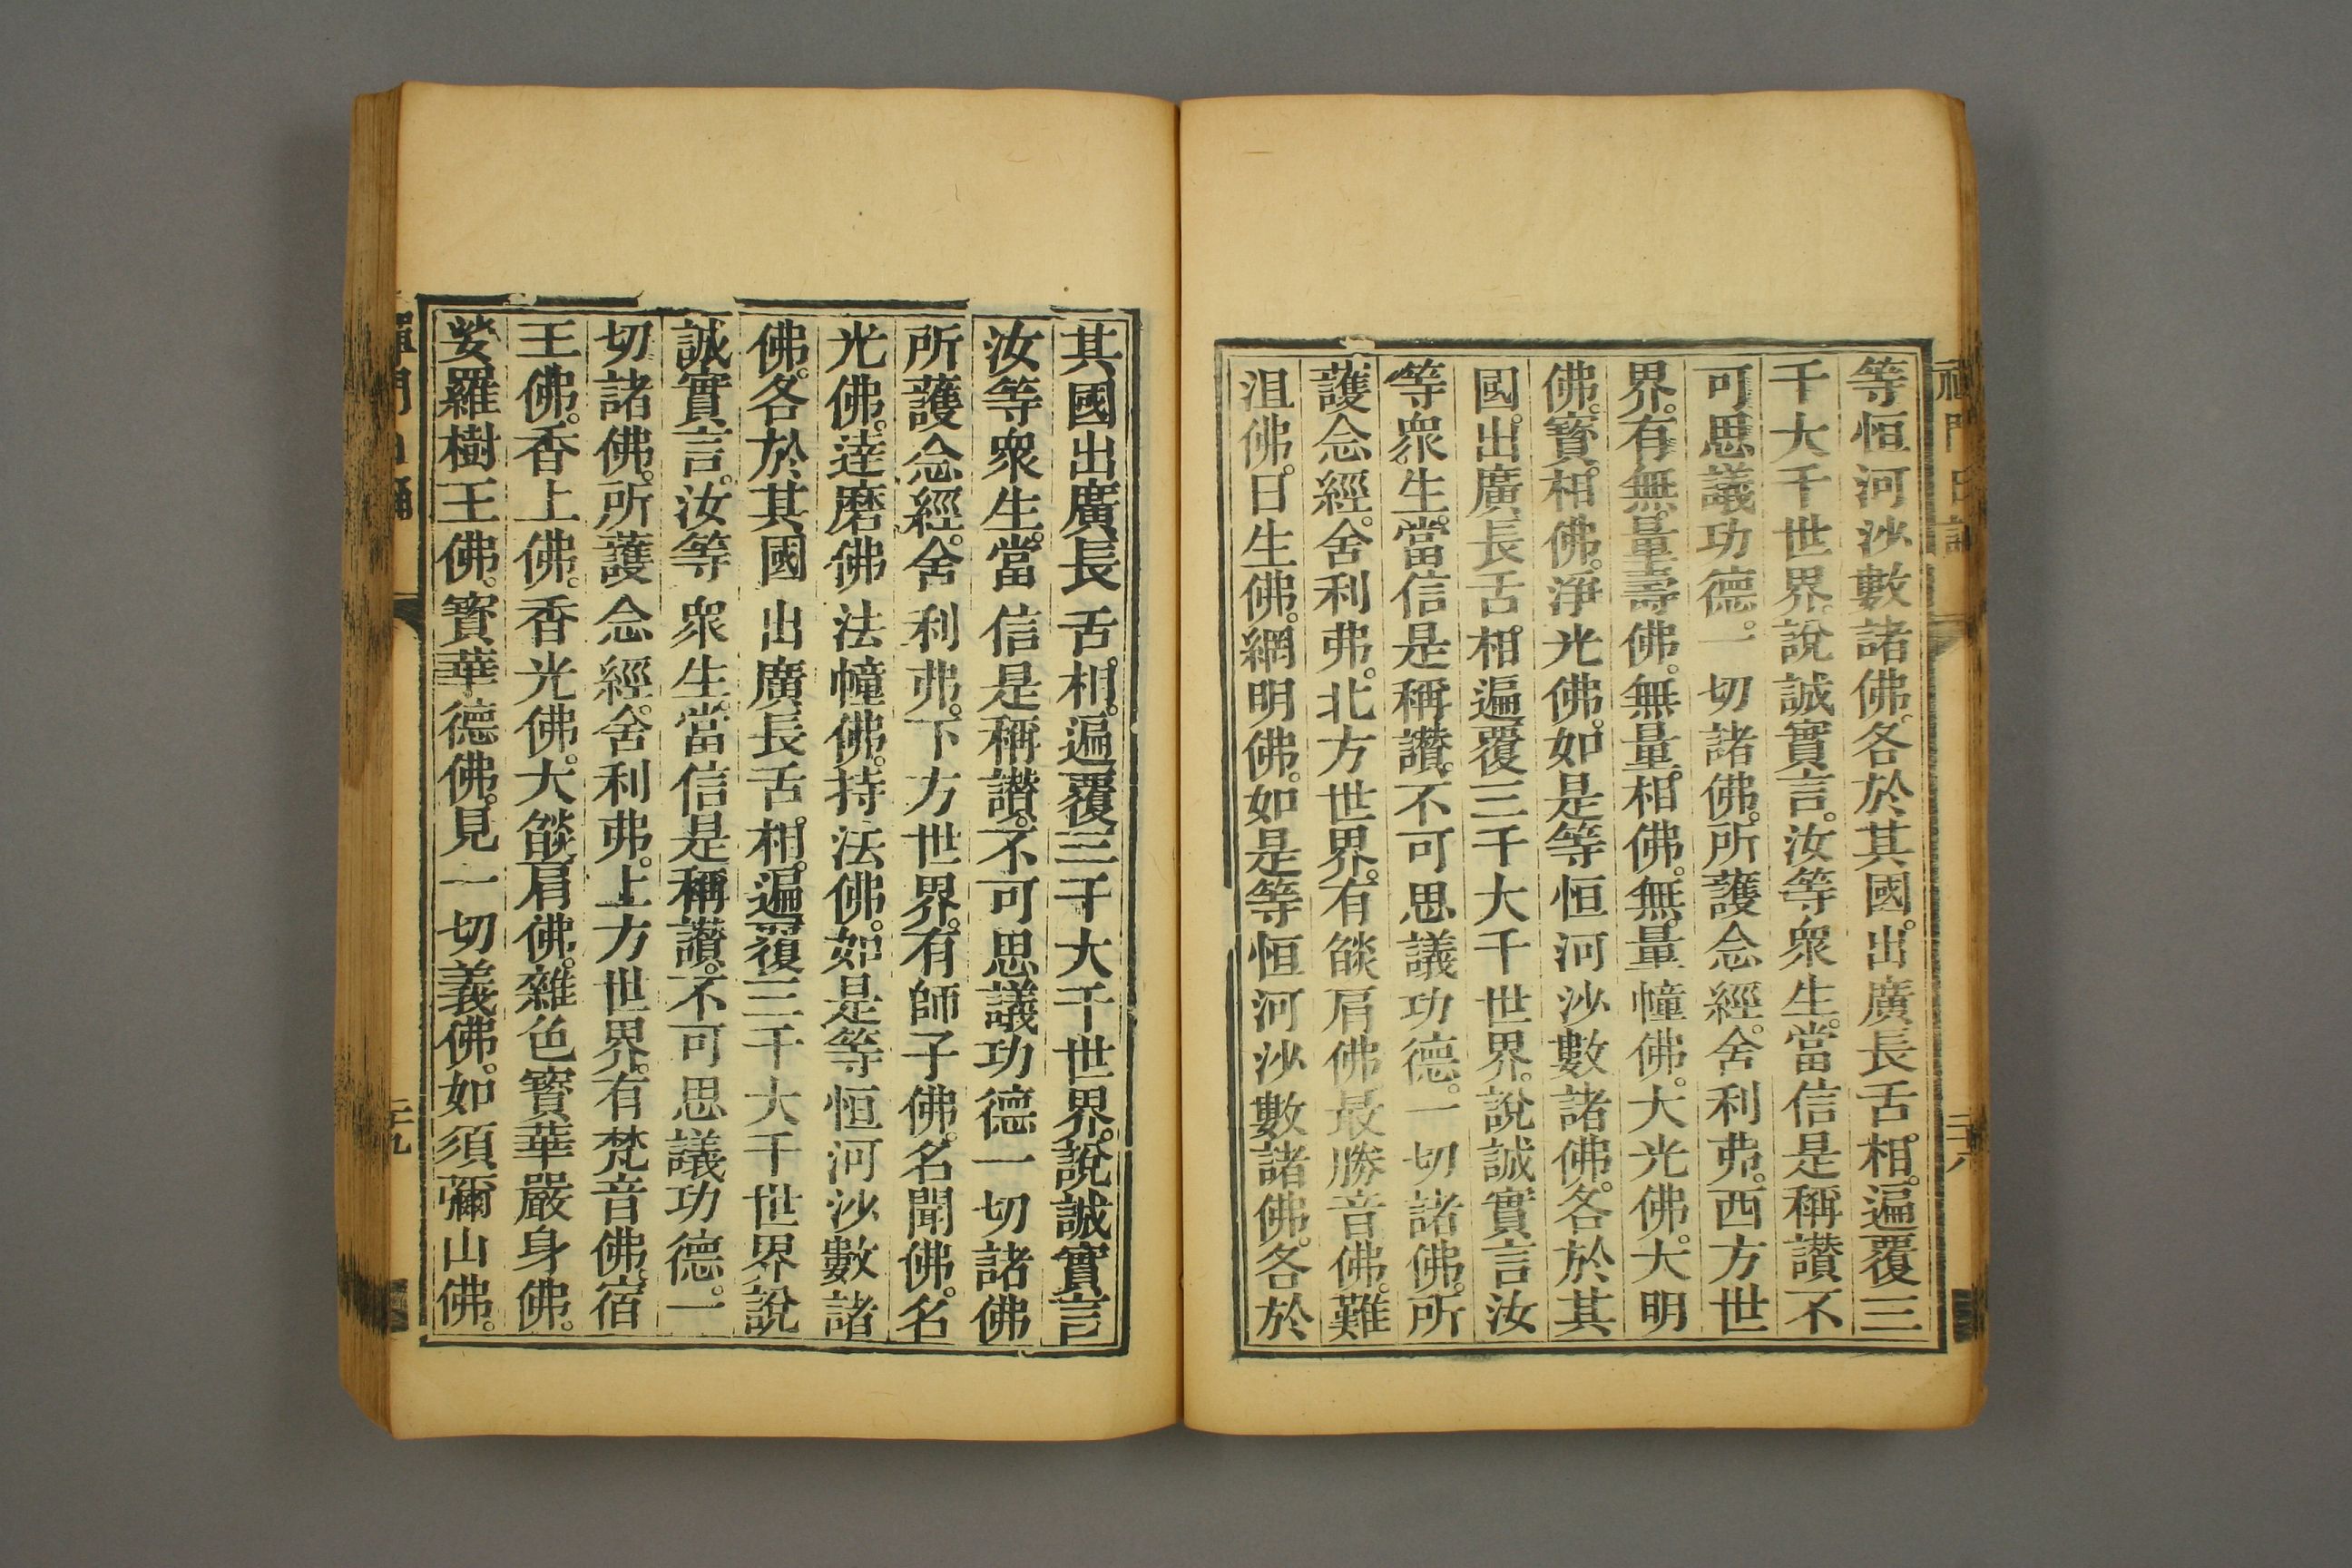 等恒河沙數諸佛。各於其國。出廣長舌相。遍覆三
千大千世界。說誠實言。汝等衆生。當信是稱讚不
可思議功德。一切諸佛。所護念經。舍利弗。西方世
界。有無量壽佛。無量相佛。無量幢佛。大光佛。大明
佛。寳相佛。淨光佛。如是等恒河沙數諸佛。各於其
國。出廣長舌相。遍覆三千大千世界。說誠實言汝
等衆生。當信是稱讚。不可思議功德。一切諸佛。所
護念經。舍利弗。北方世界。有燄肩佛。最勝音佛。難
沮佛。日生佛。網明佛。如是等恒河沙數諸佛。各於
其國出廣長舌相。遍覆三千大千世界。說誠實言
汝等衆生。當信是稱讚。不可思議功德一切諸佛
所護念經。舍利弗。下方世界。有師子佛。名聞佛。名
光佛。達磨佛法幢佛。持法佛。如是等恒河沙數諸
佛。各於其國出廣長舌相。遍覆三千大千世界說
誠實言。汝等衆生。當信是稱讚。不可思議功德。一
切諸佛。所護念經。舍利弗。上方世界。有梵音佛。宿
王佛。香上佛。香光佛。大燄肩佛。雜色寳華嚴身佛。
娑羅樹王佛。寳華德佛。見一切義佛。如須彌山佛。